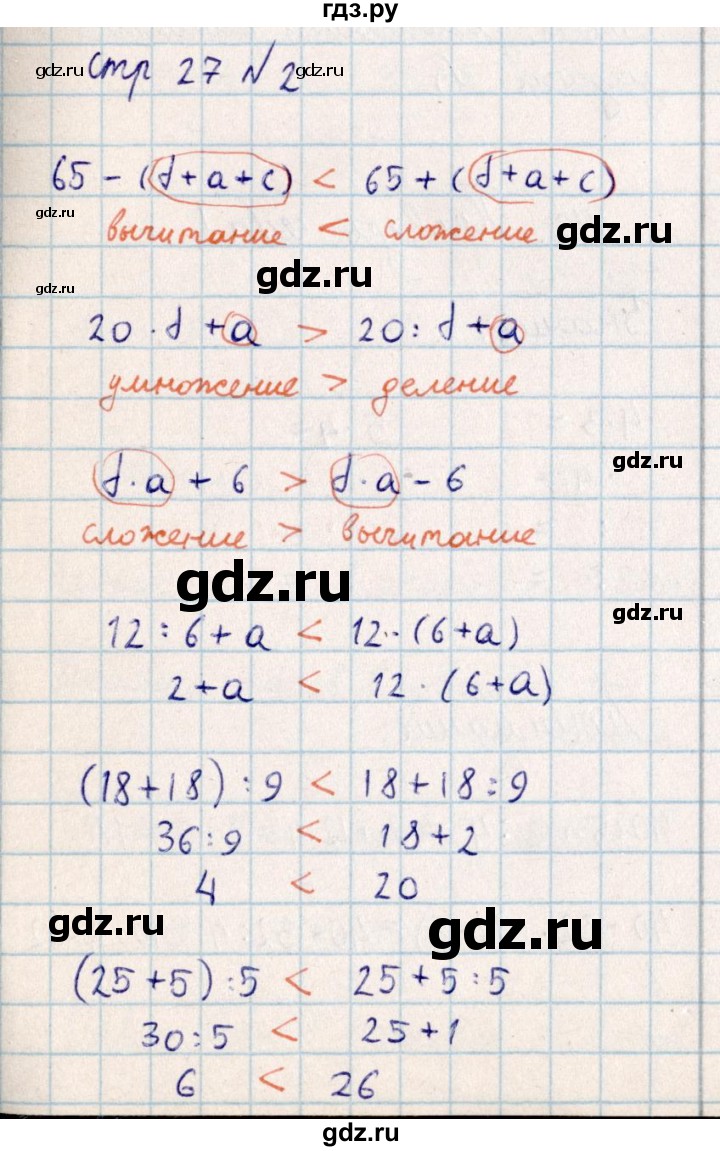 гдз.ру
gdz.ru стр 27 № 2 gdz.ru
65 - (d + a + c) < 65 + (d + a + c)
gdz.ru
вычитание < сложение gdz.ru
gdz.ru
gdz.ru
20 · d + a > 20 : d + a
умножение > деление
gdz.ru
d · a + 6 > d · a - 6
сложение > вычитание
gdz.ru
gdz.ru
12 : 6 + a < 12 · (6 + a)
2 + a < 12 · (6 + a)
(18 + 18) : 9 < 18 + 18 : 9
36 : 9 < 18 + 2
4 < 20
gdz.ru
gdz.ru
(25 + 5) : 5 < 25 + 5 : 5
30 : 5 < 25 + 1
6 < 26
gdz.ru